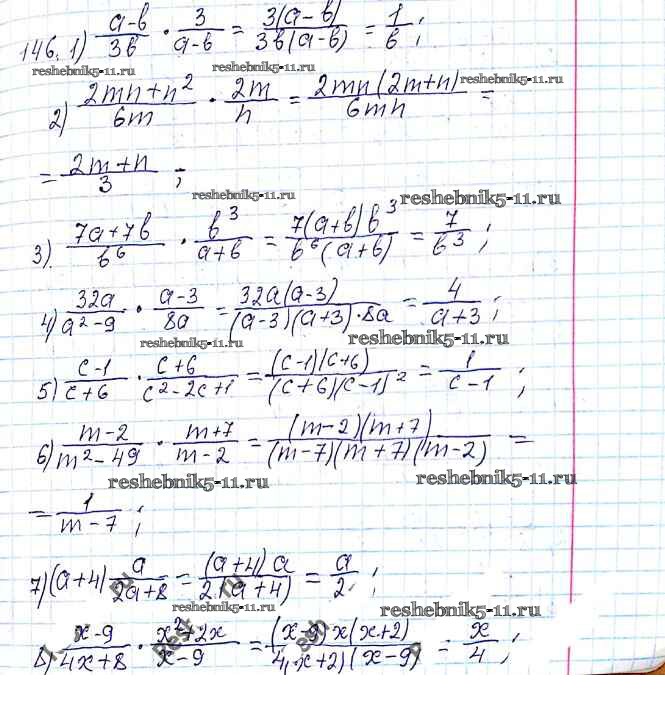 146. 1) (a-b)/(3b) · 3/(a-b) = 3(a-b)/(3b(a-b)) = 1/b ;
reshebnik5-11.ru reshebnik5-11.ru reshebnik5-11.ru
2) (2mn+n²)/(6m) · (2m)/n = 2mn(2m+n)/(6mn) =
= (2m+n)/3 ;
reshebnik5-11.ru reshebnik5-11.ru
3) (7a+7b)/b⁶ · b³/(a+b) = 7(a+b)b³/(b⁶(a+b)) = 7/b³ ;
4) (32a)/(a²-9) · (a-3)/(8a) = 32a(a-3)/((a-3)(a+3)·8a) = 4/(a+3) ;
reshebnik5-11.ru reshebnik5-11.ru
5) (c-1)/(c+6) · (c+6)/(c²-2c+1) = (c-1)(c+6)/((c+6)(c-1)²) = 1/(c-1) ;
6) (m-2)/(m²-49) · (m+7)/(m-2) = (m-2)(m+7)/((m-7)(m+7)(m-2)) =
reshebnik5-11.ru reshebnik5-11.ru
= 1/(m-7) ;
7) (a+4) a/(2a+8) = (a+4)a/(2(a+4)) = a/2 ;
reshebnik5-11.ru reshebnik5-11.ru
8) (x-9)/(4x+8) · (x²+2x)/(x-9) = (x-9)·x(x+2)/(4(x+2)(x-9)) = x/4 ;